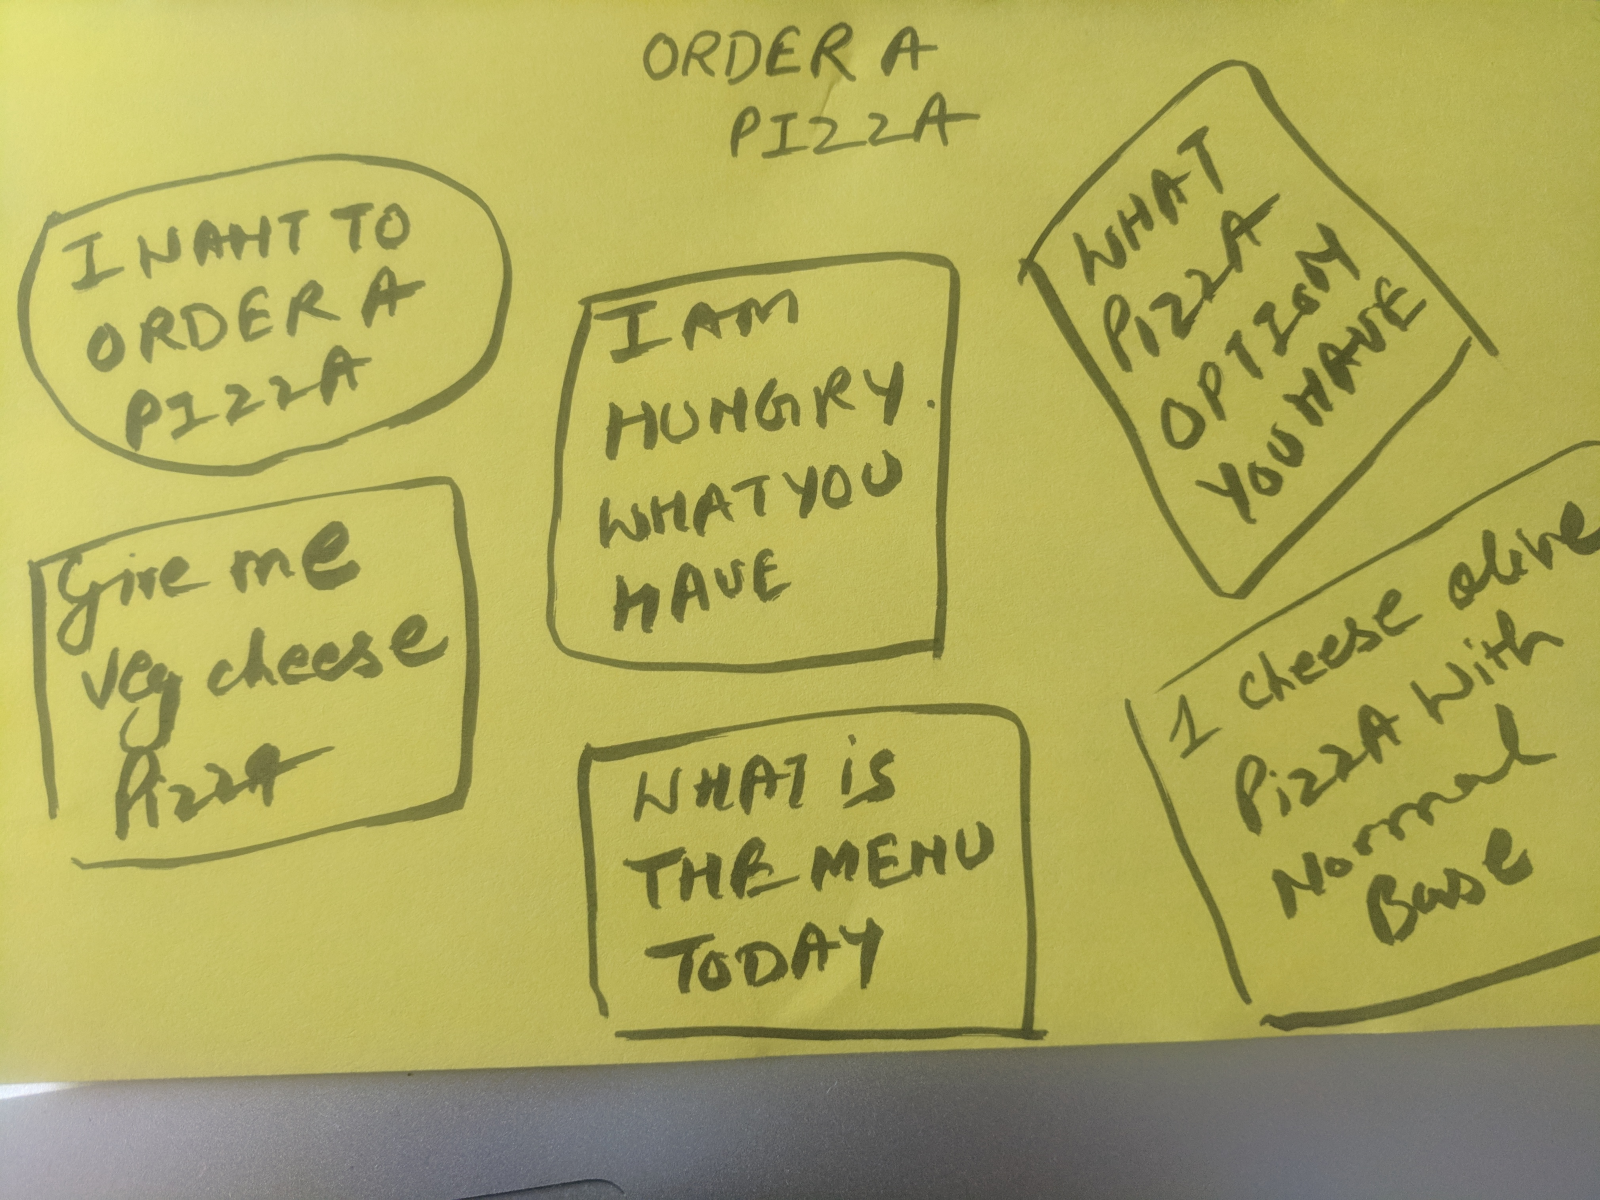 ORDER A
PIZZA
I WANT TO
ORDER A
PIZZA
I AM
HUNGRY.
WHAT YOU
HAVE
WHAT
PIZZA
OPTION
YOU HAVE
Give me
veg cheese
Pizza
WHAT is
THE MENU
TODAY
1 cheese olive
PizzA with
Normal
Base